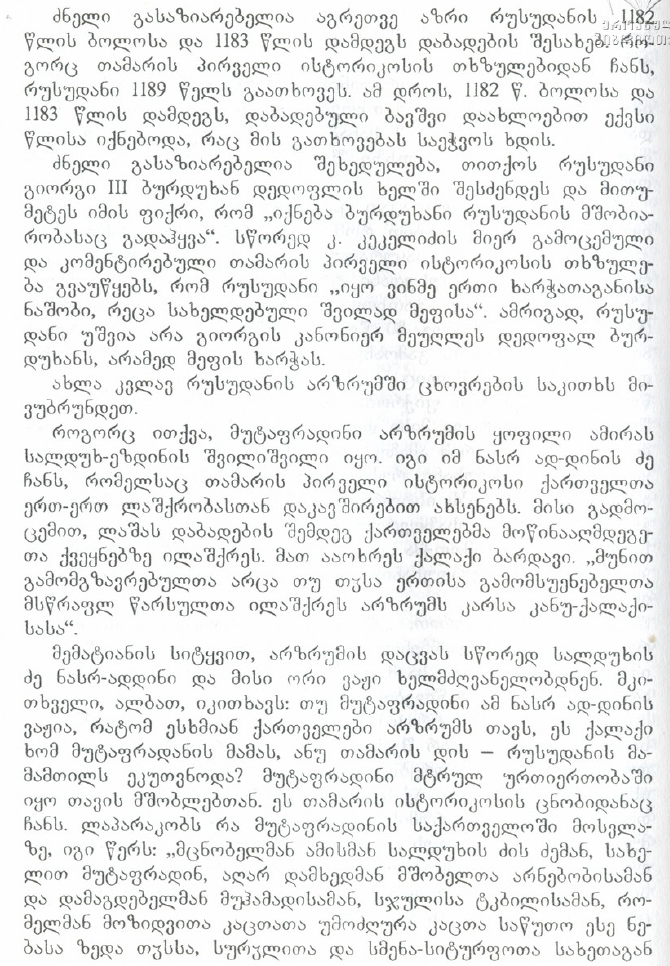 ძნელი გასაზიარებელია აგრეთვე აზრი რუსუდანის 1182
წლის ბოლოსა და 1183 წლის დამდეგს დაბადების შესახებ. რო-
გორც თამარის პირველი ისტორიკოსის თხზულებიდან ჩანს,
რუსუდანი 1189 წელს გაათხოვეს. ამ დროს, 1182 წ. ბოლოსა და
1183 წლის დამდეგს, დაბადებული ბავშვი დაახლოებით ექვსი
წლისა იქნებოდა, რაც მის გათხოვებას საეჭვოს ხდის.
ძნელი გასაზიარებელია შეხედულება, თითქოს რუსუდანი
გიორგი III ბურდუხან დედოფლის ხელში შესძენდეს და მითუ-
მეტეს იმის ფიქრი, რომ „იქნება ბურდუხანი რუსუდანის მშობია-
რობასაც გადაჰყვა“. სწორედ კ. კეკელიძის მიერ გამოცემული
და კომენტირებული თამარის პირველი ისტორიკოსის თხზულე-
ბა გვაუწყებს, რომ რუსუდანი „იყო ვინმე ერთი ხარჭათაგანისა
ნაშობი, რეცა სახელდებული შვილად მეფისა“. ამრიგად, რუსუ-
დანი უშვია არა გიორგის კანონიერ მეუღლეს დედოფალ ბურ-
დუხანს, არამედ მეფის ხარჭას.
ახლა კვლავ რუსუდანის არზრუმში ცხოვრების საკითხს მი-
ვუბრუნდეთ.
როგორც ითქვა, მუტაფრადინი არზრუმის ყოფილი ამირას
სალდუხ-ეზდინის შვილიშვილი იყო. იგი იმ ნასრ ად-დინის ძე
ჩანს, რომელსაც თამარის პირველი ისტორიკოსი ქართველთა
ერთ-ერთ ლაშქრობასთან დაკავშირებით ახსენებს. მისი გადმო-
ცემით, ლაშას დაბადების შემდეგ ქართველებმა მოწინააღმდეგე-
თა ქვეყნებზე ილაშქრეს. მათ ააოხრეს ქალაქი ბარდავი. „მუნით
გამომგზავრებულთა არცა თუ თჳსა ერთისა გამომსუენებელთა
მსწრაფლ წარსულთა ილაშქრეს არზრუმს კარსა კანუ-ქალაქი-
სასა“.
მემატიანის სიტყვით, არზრუმის დაცვას სწორედ სალდუხის
ძე ნასრ-ადდინი და მისი ორი ვაჟი ხელმძღვანელობდნენ. მკი-
თხველი, ალბათ, იკითხავს: თუ მუტაფრადინი ამ ნასრ ად-დინის
ვაჟია, რატომ ესხმიან ქართველები არზრუმს თავს, ეს ქალაქი
ხომ მუტაფრადანის მამას, ანუ თამარის დის – რუსუდანის მა-
მამთილს ეკუთვნოდა? მუტაფრადინი მტრულ ურთიერთობაში
იყო თავის მშობლებთან. ეს თამარის ისტორიკოსის ცნობიდანაც
ჩანს. ლაპარაკობს რა მუტაფრადინის საქართველოში მოსვლა-
ზე, იგი წერს: „მცნობელმან ამისმან სალდუხის ძის ძემან, სახე-
ლით მუტაფრადინ, აღარ დამხედმან მშობელთა არნებობისამან
და დამაგდებელმან მუჰამადისამან, სჯულისა ტკბილისამან, რო-
მელმან მოზიდვითა კაცთათა უმოძღურა კაცთა საწუთო ესე ნე-
ბასა ზედა თჳსსა, სურჳლითა და სმენა-სიტურფოთა სახეთაგან